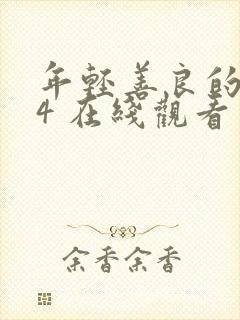 年輕善良的
4在綫觀看
余香余香